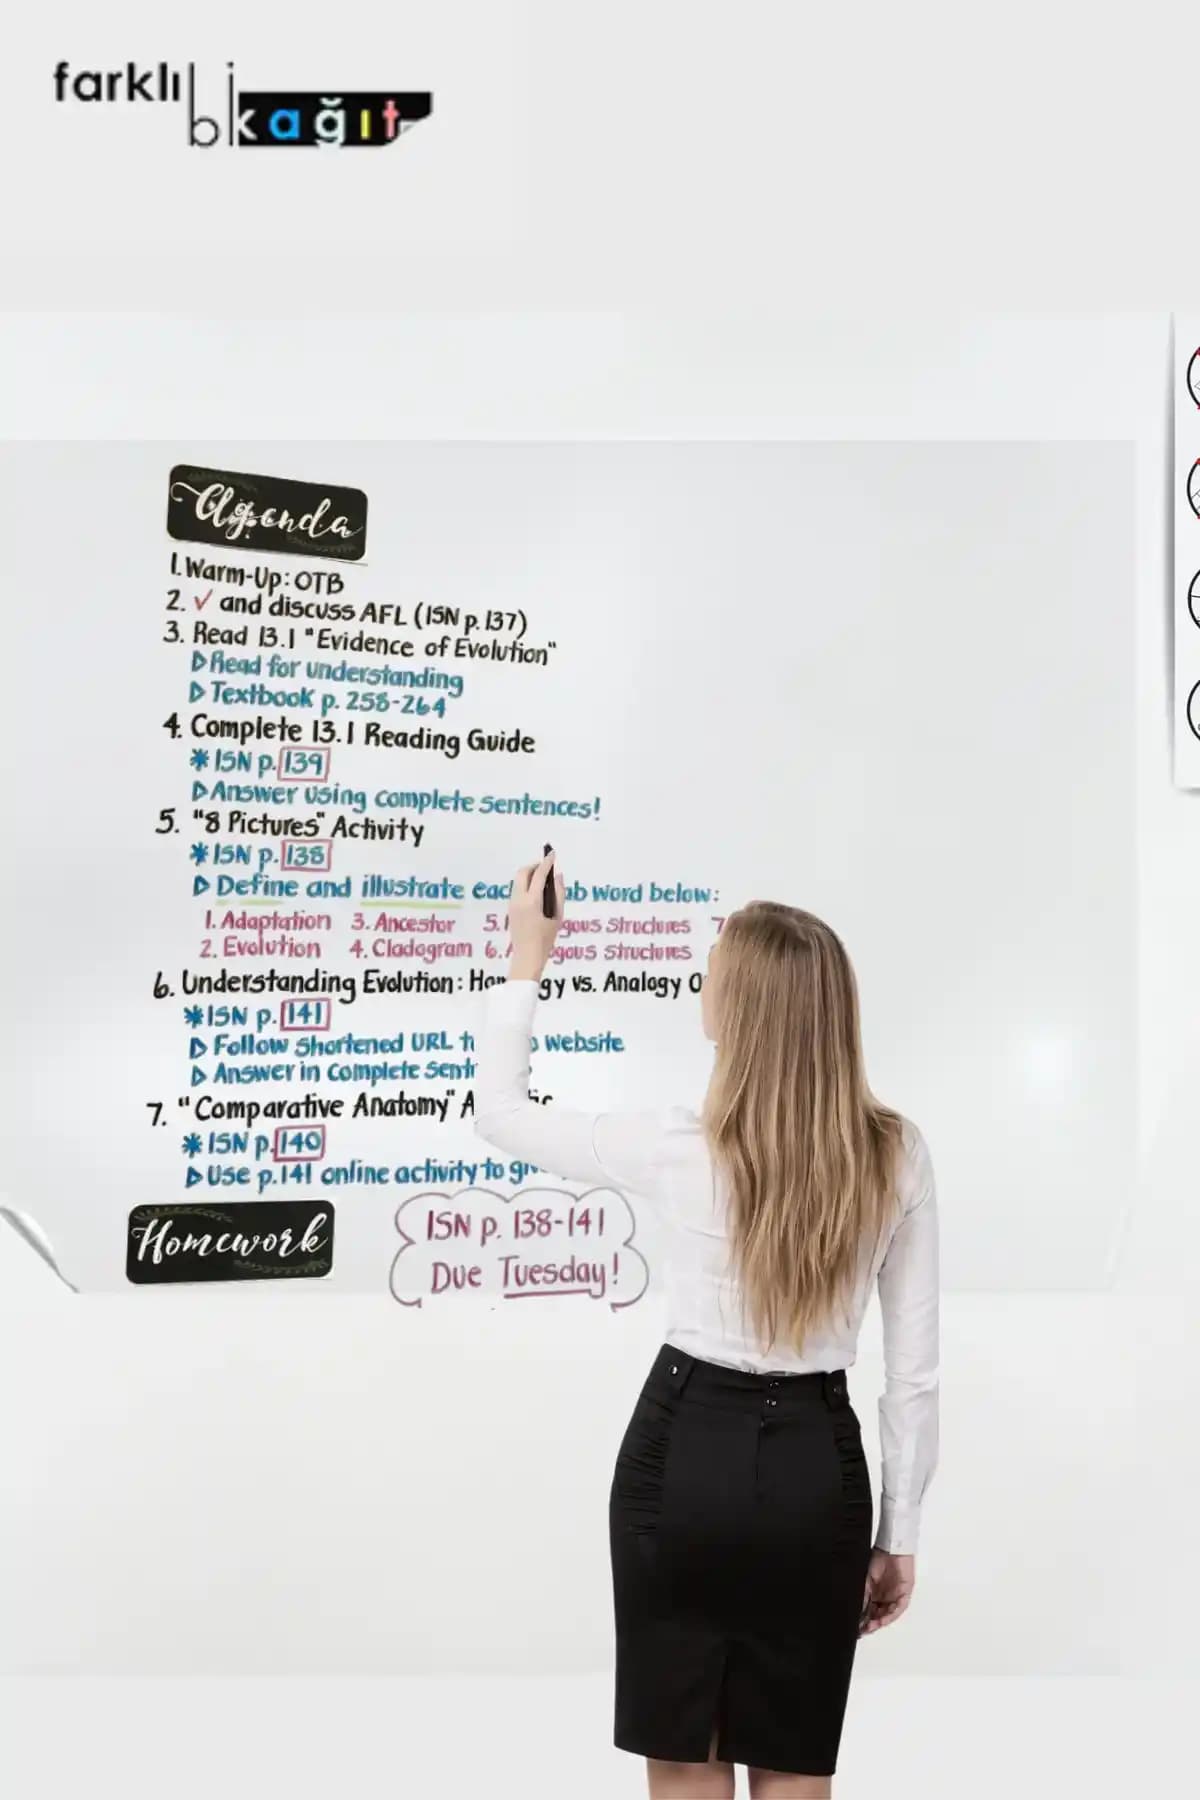 farklı bi kağıt
Agenda
1. Warm-Up: OTB
2. ✓ and discuss AFL (ISN p. 137)
3. Read 13.1 "Evidence of Evolution"
▷ Read for understanding
▷ Textbook p. 258-264
4. Complete 13.1 Reading Guide
* ISN p. 139
▷ Answer using complete sentences!
5. "8 Pictures" Activity
* ISN p. 138
▷ Define and illustrate word below:
1. Adaptation 3. Ancestor 5. Structures 7
2. Evolution 4. Cladogram 6. Structures
6. Understanding Evolution: vs. Analogy
* ISN p. 141
▷ Follow Shortened URL website
▷ Answer in complete
7. "Comparative Anatomy"
* ISN p. 140
▷ Use p. 141 online activity to
Homework
ISN p. 138-141
Due Tuesday!